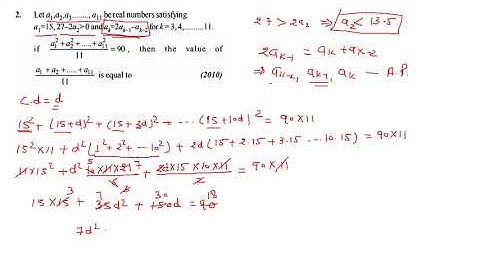 2. Let a₁,a₂,a₃,........, a₁₁ be real numbers satisfying
a₁=15, 27–2a₂>0 and aₖ=2aₖ₋₁–aₖ₋₂ for k=3,4,..........11.
if (a₁²+a₂²+.....+a₁₁²)/11 = 90 , then the value of
(a₁+a₂+.....+a₁₁)/11 is equal to (2010)
27 > 2a₂ ⇒ a₂ < 13.5
2aₖ₋₁ = aₖ + aₖ₋₂
⇒ aₖ₋₂, aₖ₋₁, aₖ — A.P.
C.d = d
15² + (15+d)² + (15+2d)² + --- (15+10d)² = 90×11
15²×11 + d²(1²+2²+---10²) + 2d(15+2.15+3.15 --- 10.15) = 90×11
11×15² + d² 5 10×11×21 7 / 6 + 2d×15×10×11 / 2 = 90×11
15×15 3 + 35 7 d² + 150 30 d = 90 18
7d²